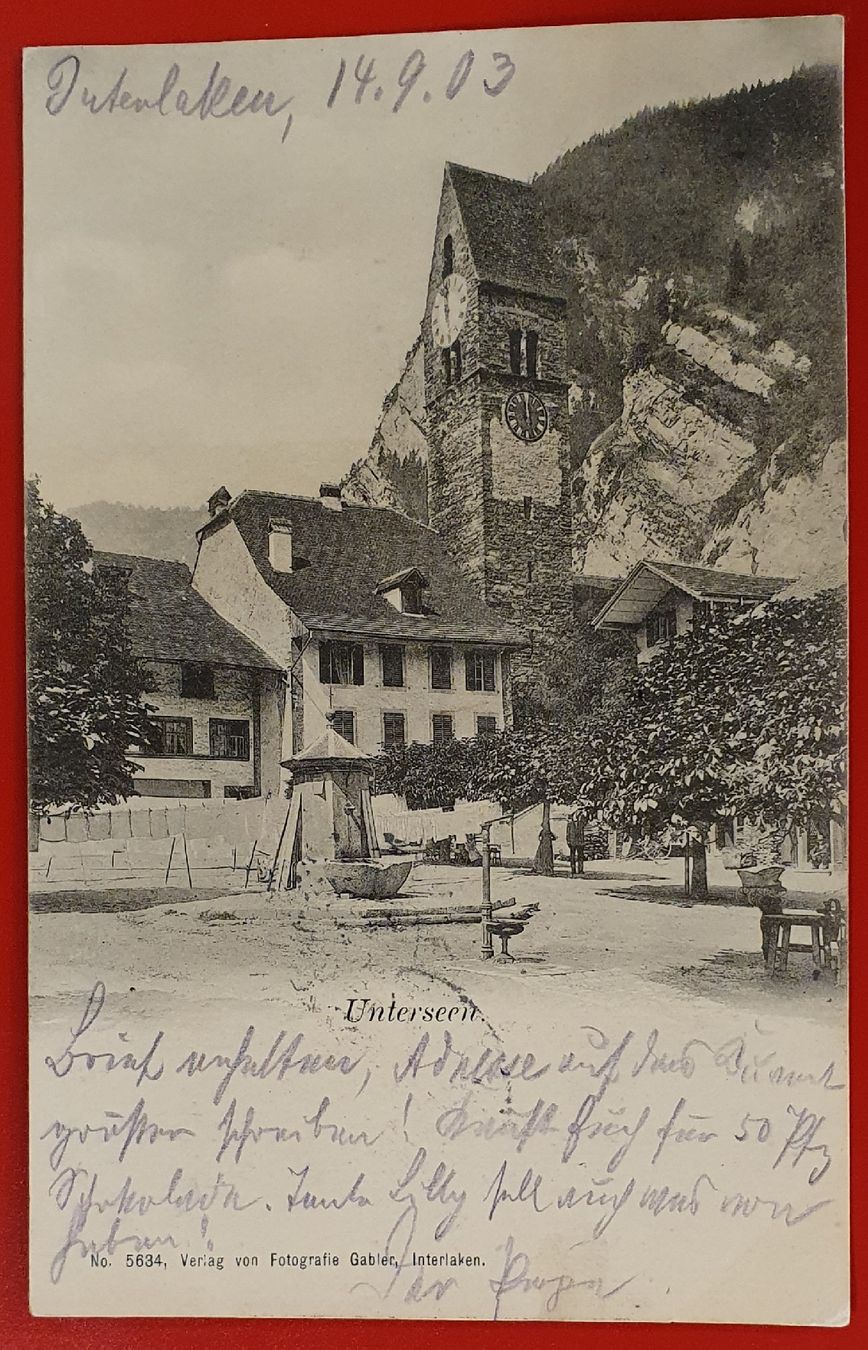 Interlaken, 14.9.03
Unterseen.
Brief erhalten, Adresse auf das
größer schreiben! Kauft Euch für 50 Pfg
Schokolade. Tante Lilly soll auch was von
haben!
No. 5634, Verlag von Fotografie Gabler, Interlaken.
Der Papa